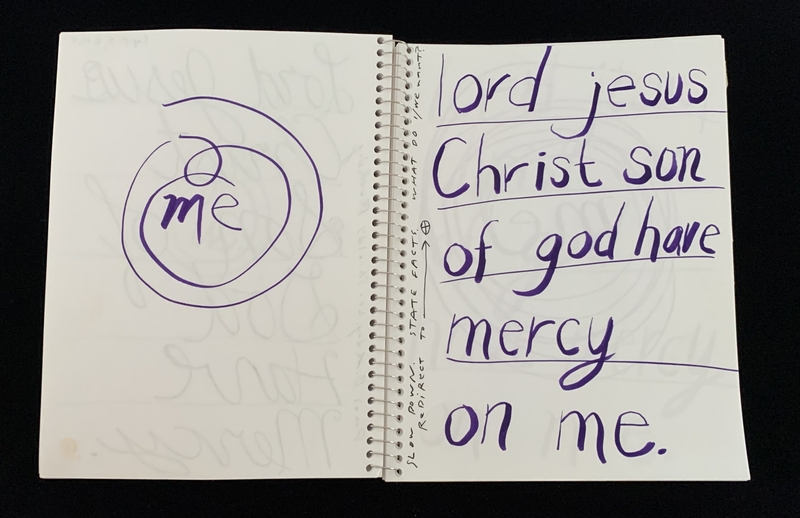 me
lord jesus
Christ son
of god have
mercy
on me.
SLOW DOWN. STATE FACTS. WHAT DO I/WE WANT?
REDIRECT TO → ⊕